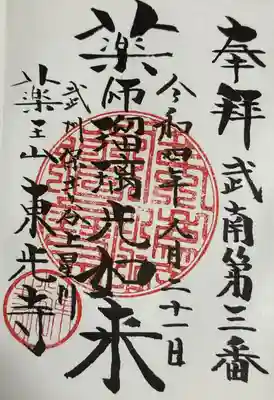 奉拝 武南第三番
令和四年 月二十一日
薬師瑠璃光如来
武州 谷上星川
薬王山 東光寺